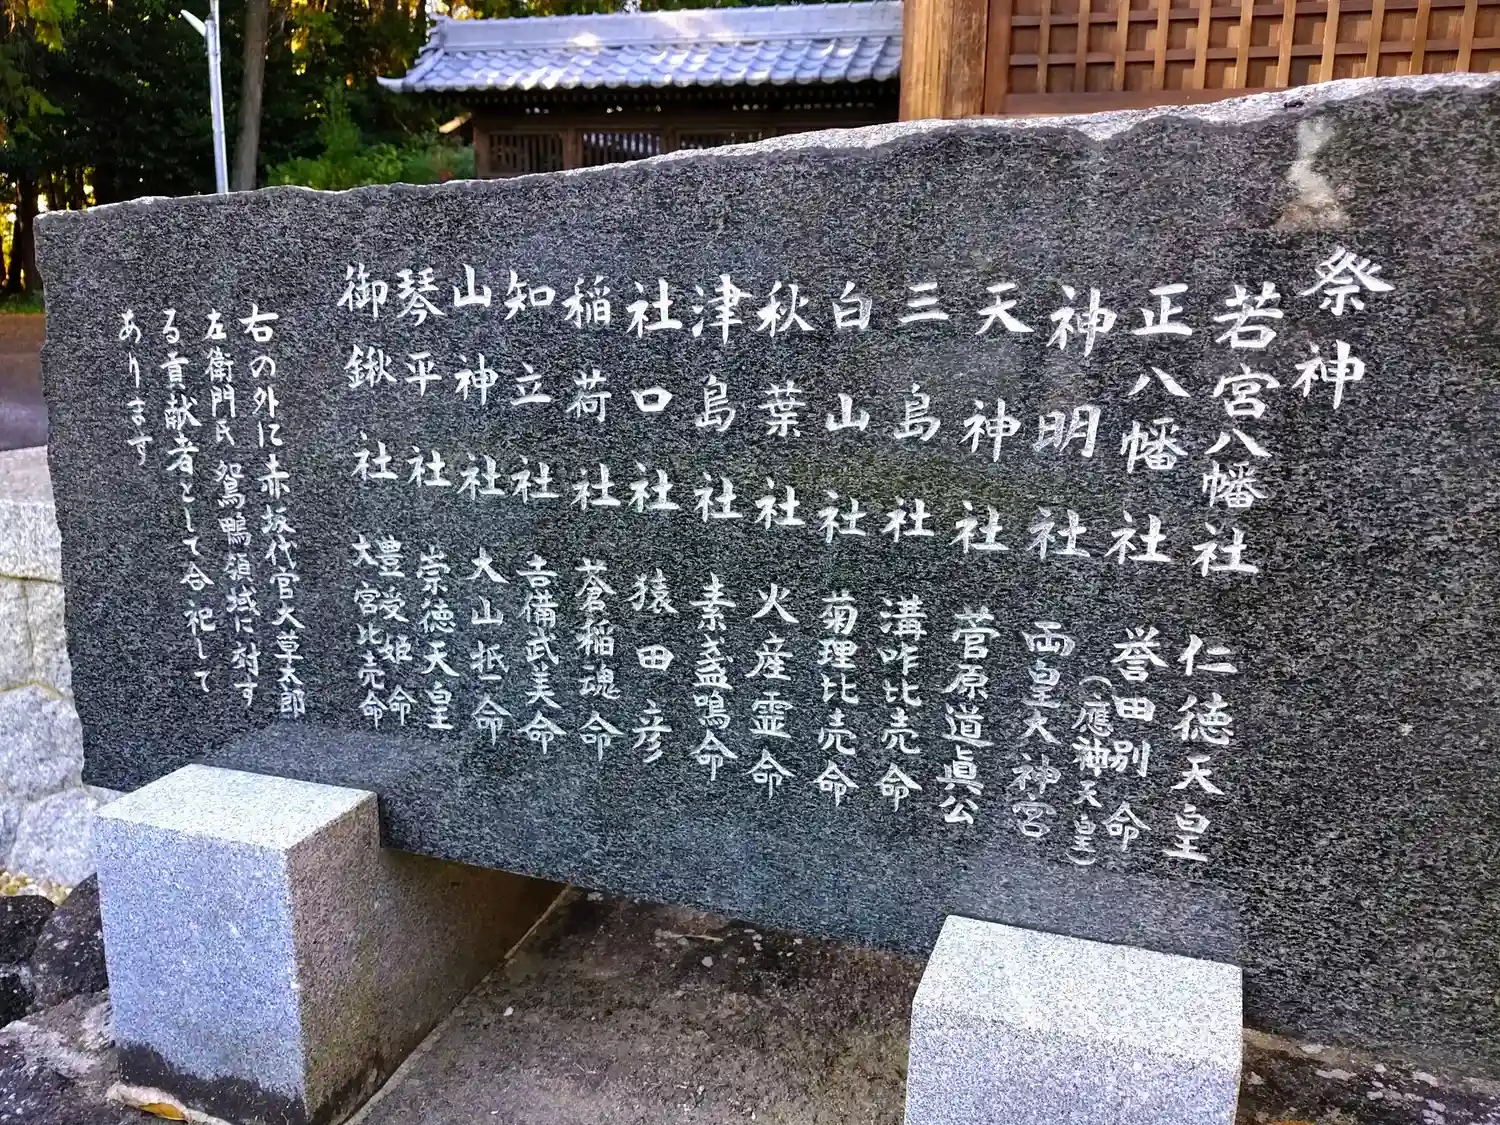 祭神
若宮八幡社 仁徳天皇
正八幡社 誉田別命
(應神天皇)
神明社 両皇大神宮
天神社 菅原道眞公
三島社 溝咋比売命
白山社 菊理比売命
秋葉社 火産霊命
津島社 素盞鳴命
社口社 猿田彦
稲荷社 蒼稲魂命
知立社 吉備武美命
山神社 大山祇命
琴平社 崇徳天皇
御鍬社 豊受姫命
大宮比売命
右の外に赤坂代官大草太郎
左衛門氏 鴛鴨領域に対す
る貢献者として合祀して
あります